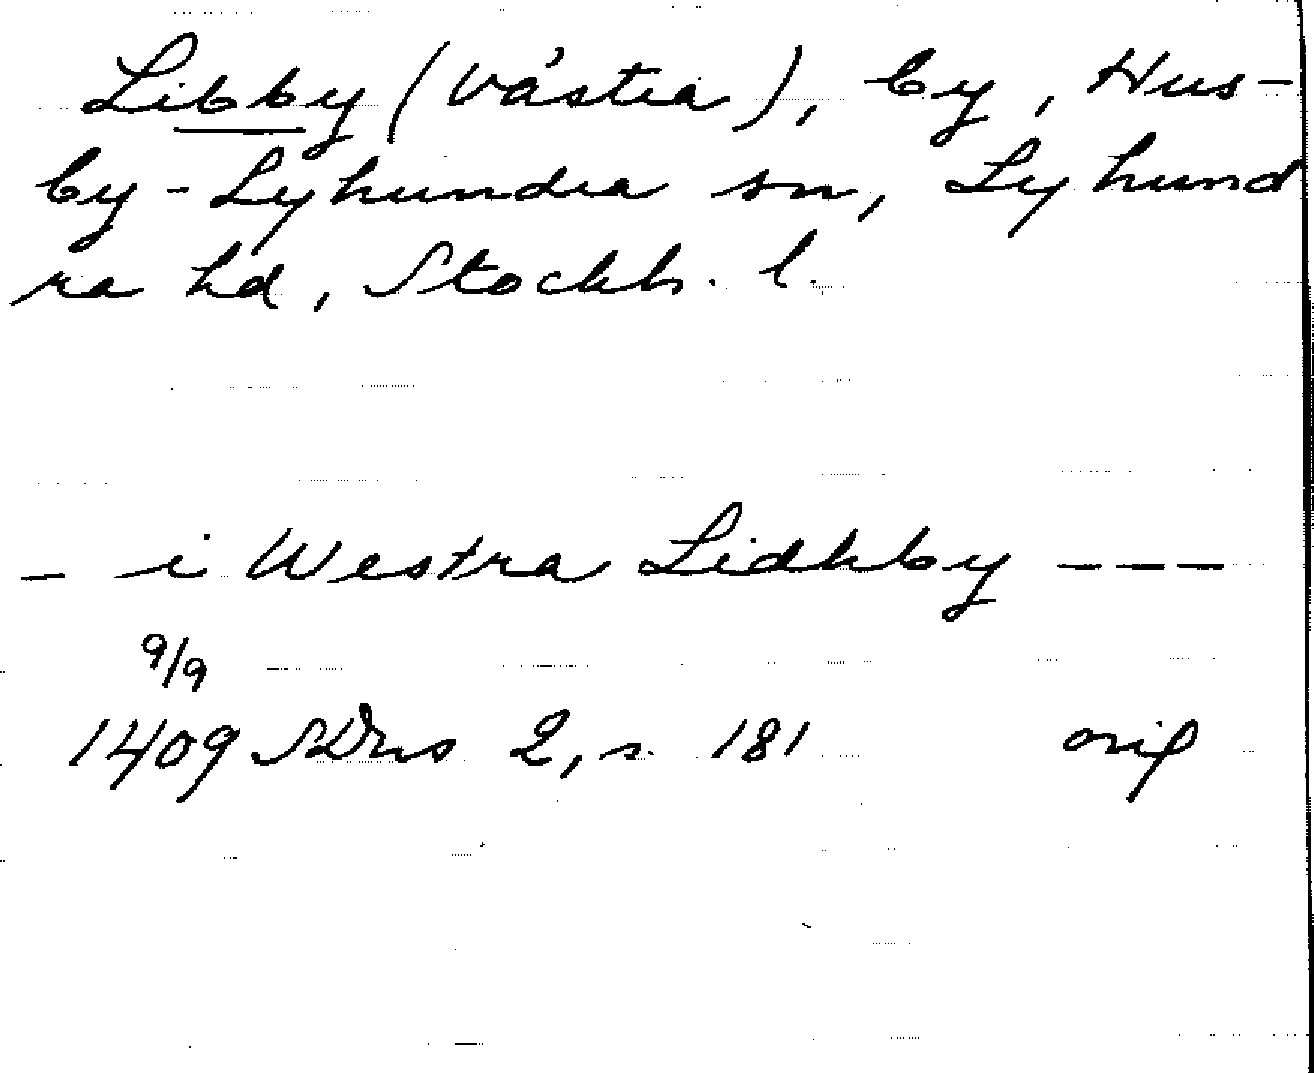 Libby (Västra), by, Hus-
by-Lyhundra sn, Lyhund
ra hd, Stockh. l.
- i Westra Lidhby ---
9/9
1409 SDns 2, s. 181 orig